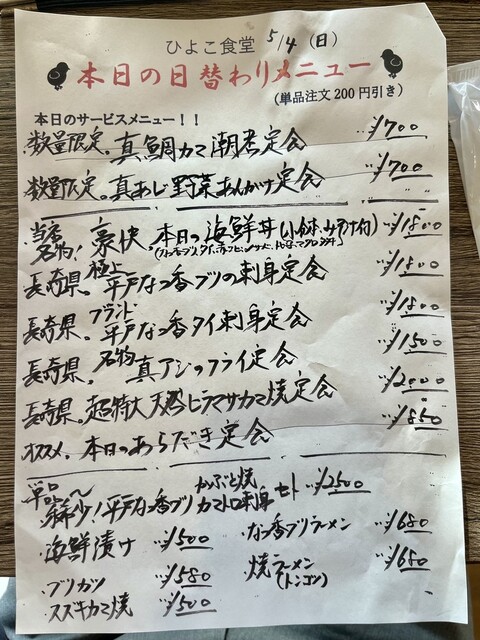 ひよこ食堂 5/4(日)
本日の日替わりメニュー
(単品注文200円引き)
本日のサービスメニュー!!
・数量限定。真鯛カマ潮煮定会 …¥700
数量限定。真あじ野菜あんかけ定会 …¥700
当店名物!豪快、本日の海鮮丼(小鉢、みそ汁付) …¥1800
長崎県。極上平戸なつ香ブリの刺身定会 …¥1800
長崎県。ブランド平戸なつ香タイ刺身定会 …¥1800
長崎県。名物真アジのフライ定会 …¥1500
長崎県。超特大天然ヒラマサカマ焼定会 …¥2000
オススメ。本日のあらだき定会 …¥850
単品
稀少!平戸なつ香ブリ かぶと焼 カマトロ刺身 セト …¥2500
・海鮮漬け ¥500
・なつ香ブリラーメン …¥680
・ブリカツ ¥580
焼ラーメン(トンコツ) …¥680
・スズキカマ焼 ¥500